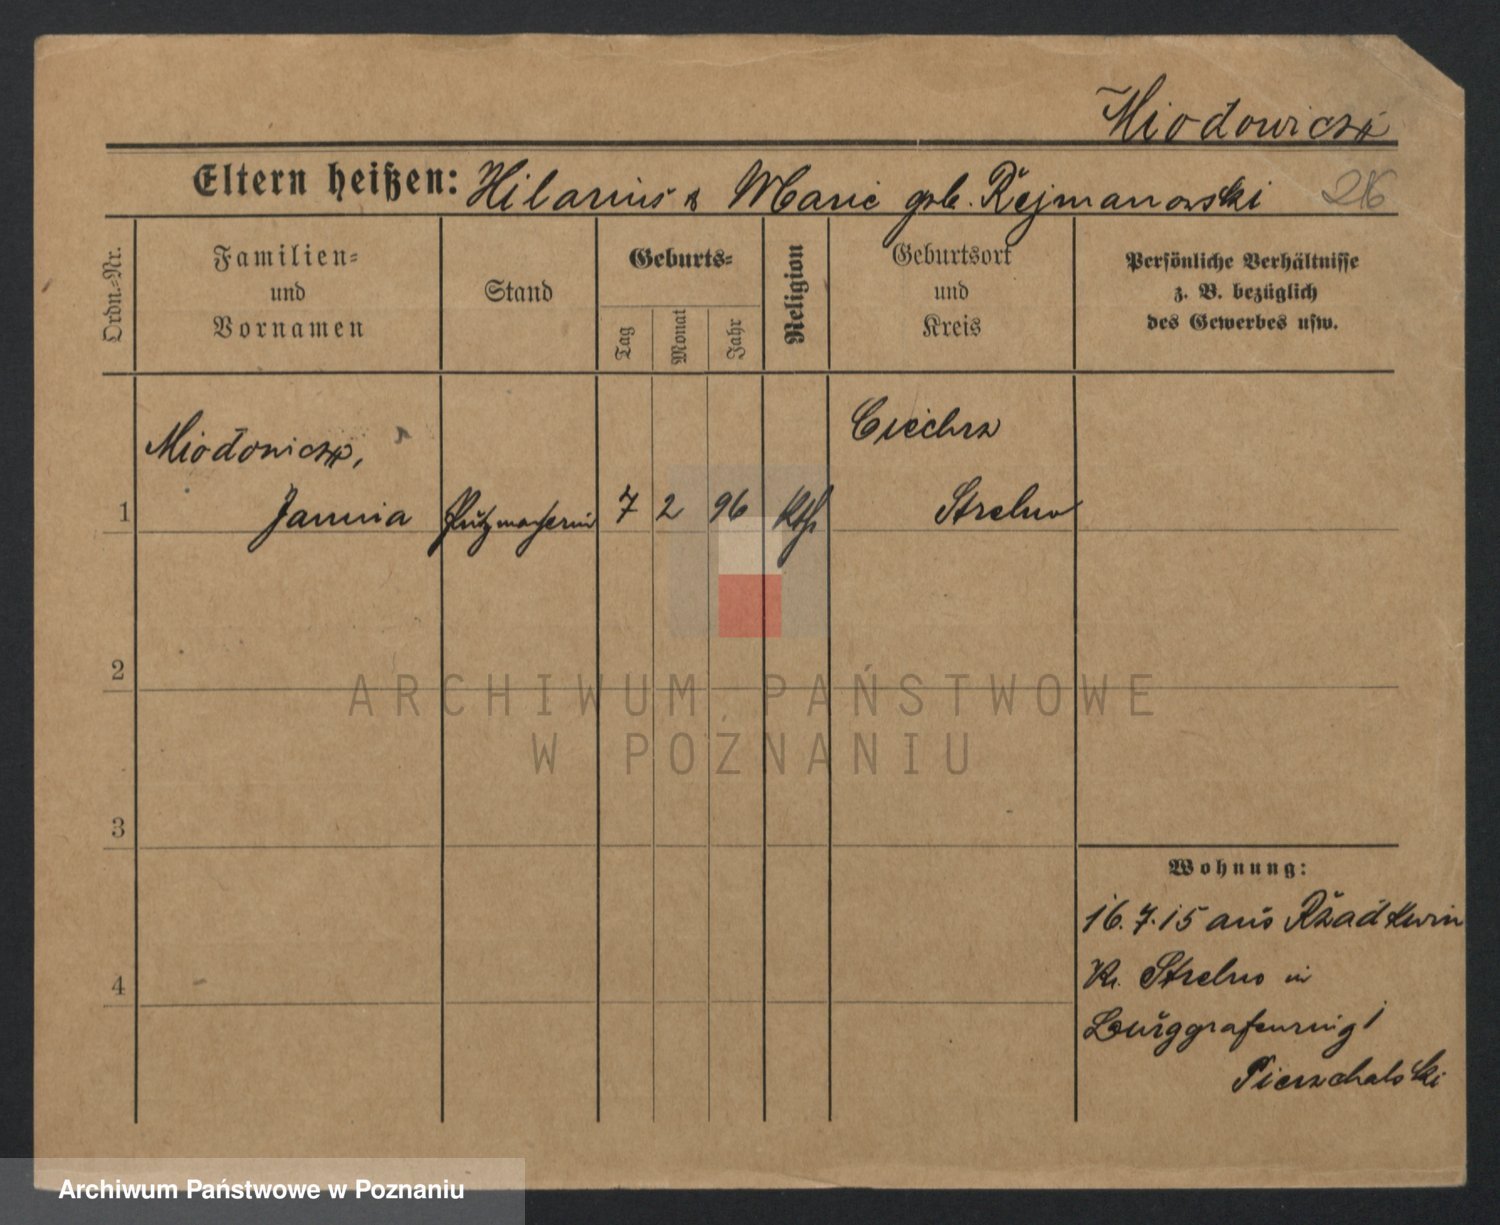 Miodowicz
Eltern heißen: Hilarius & Marie geb. Rejmanowski 216
Ordn.-Nr.
Familien-
und
Vornamen
Stand
Geburts-
Tag
Monat
Jahr
Religion
Geburtsort
und
Kreis
Persönliche Verhältnisse
z. B. bezüglich
des Gewerbes usw.
Miodowicz, Ciechrz
1 Janina Putzmacherin 7 2 96 kth Strelno
2
ARCHIWUM PAŃSTWOWE
W POZNANIU
3
Wohnung:
16.7.15 aus Rzadkwin
Kr. Strelno in
4
Burggrafenring 1
Pierzchalski
Archiwum Państwowe w Poznaniu